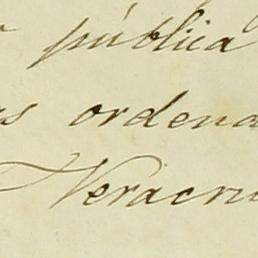 pública
as ordena
Veracru